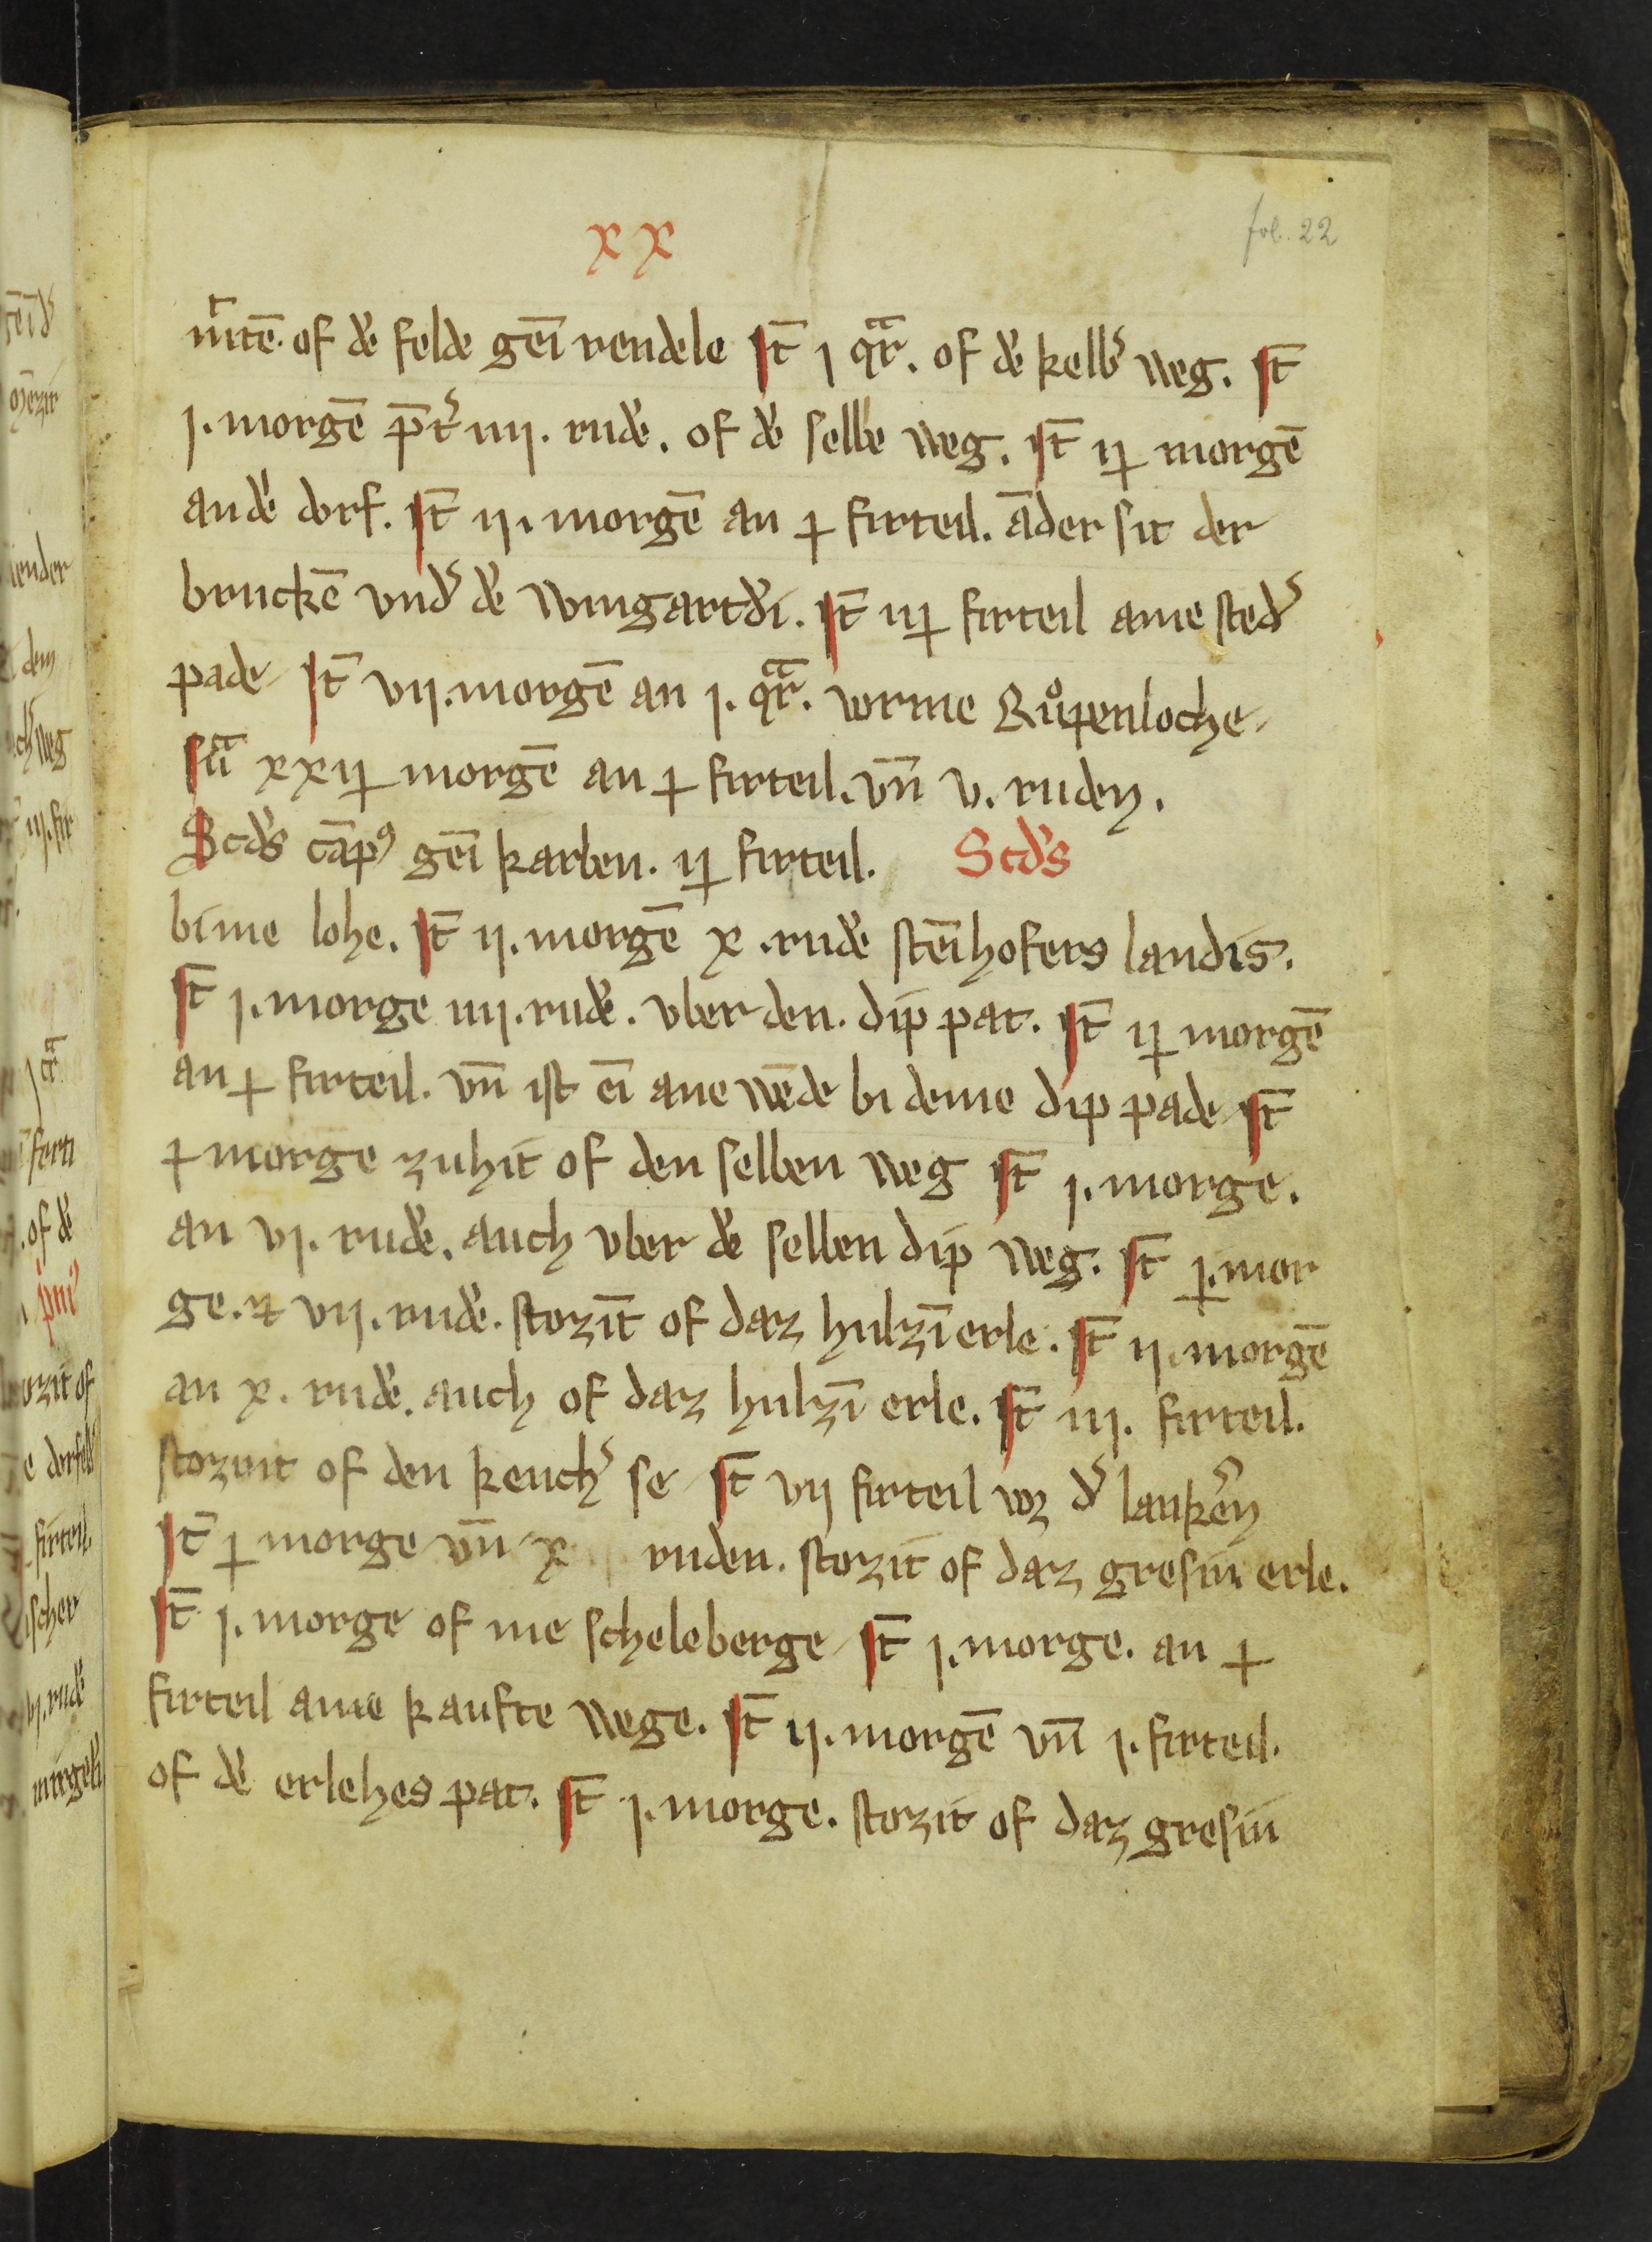 xx
fol. 22
mitē. of dē felde gēi rendele Jt̄ j qr̄. of dē kelb' weg. Jt̄
j. morgē p̄t' iiij. rudē. of dē selbē weg. Jt̄ ij morgē
an dē dorf. Jt̄ ij. morgē an ɟ firteil. āder sit der
bruckē vnd' dē wingartdī. Jt̄ iij firteil ame sted'
pade Jt̄ vij. morgē an j. qr̄. vorme Růpenloche
sū xxij morgē an ɟ firteil. vn̄ v. rudeṅ.
Scd's cāp9 gēi karben. ij firteil. Scd's
bime lohe. Jt̄ ij. morgē x. rudē stēihofers landis.
Jt̄ j. morge iiij. rudē. vber den. dip pat. Jt̄ ij morgē
an ɟ firteil. vn̄ ist eī ane wēde bi deme dip pade Jt̄
ɟ morge zuhit of den selben weg Jt̄ j. morge.
an vj. rudē. auch vber dē selben dip weg. Jt̄ ɟ. mor
ge. ⁊ vij. rudē. stozīt of daz hulzī erle. Jt̄ ij. morgē
an x. rudē. auch of daz hulzī erle. Jt̄ iij. firteil.
stozint of den keuch' se Jt̄ vij firteil vz d' lauk'en
Jt̄ ɟ morge vn̄ x ruden. stozit of daz gresin erle.
Jt̄ j. morge of me scheleberge Jt̄ j. morge. an ɟ
firteil ame kaufte wege. Jt̄ ij. morgē vn̄ j. firteil.
of dē erlehes pat. Jt̄ j. morge. stozit of daz gresin